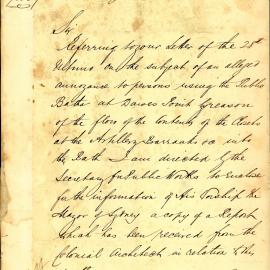 Sir,
Referring to your Letter of the 28th
Ultimo on the subject of an alleged
annoyance to persons using the Public
Baths at Dawes Point by reason
of the flow of the contents of the Closets
at the Artillery Barracks &c into
the Bath I am directed by the
Secretary for Public Works to enclose
for the information of His Worship the
Mayor of Sydney a copy of a Report
which has been received from the
Colonial Architect in relation to the